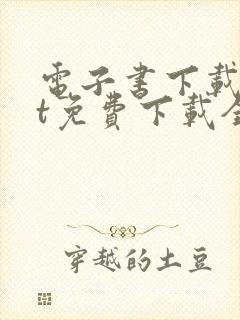 電子書下載
t免費下載全
穿越的土豆